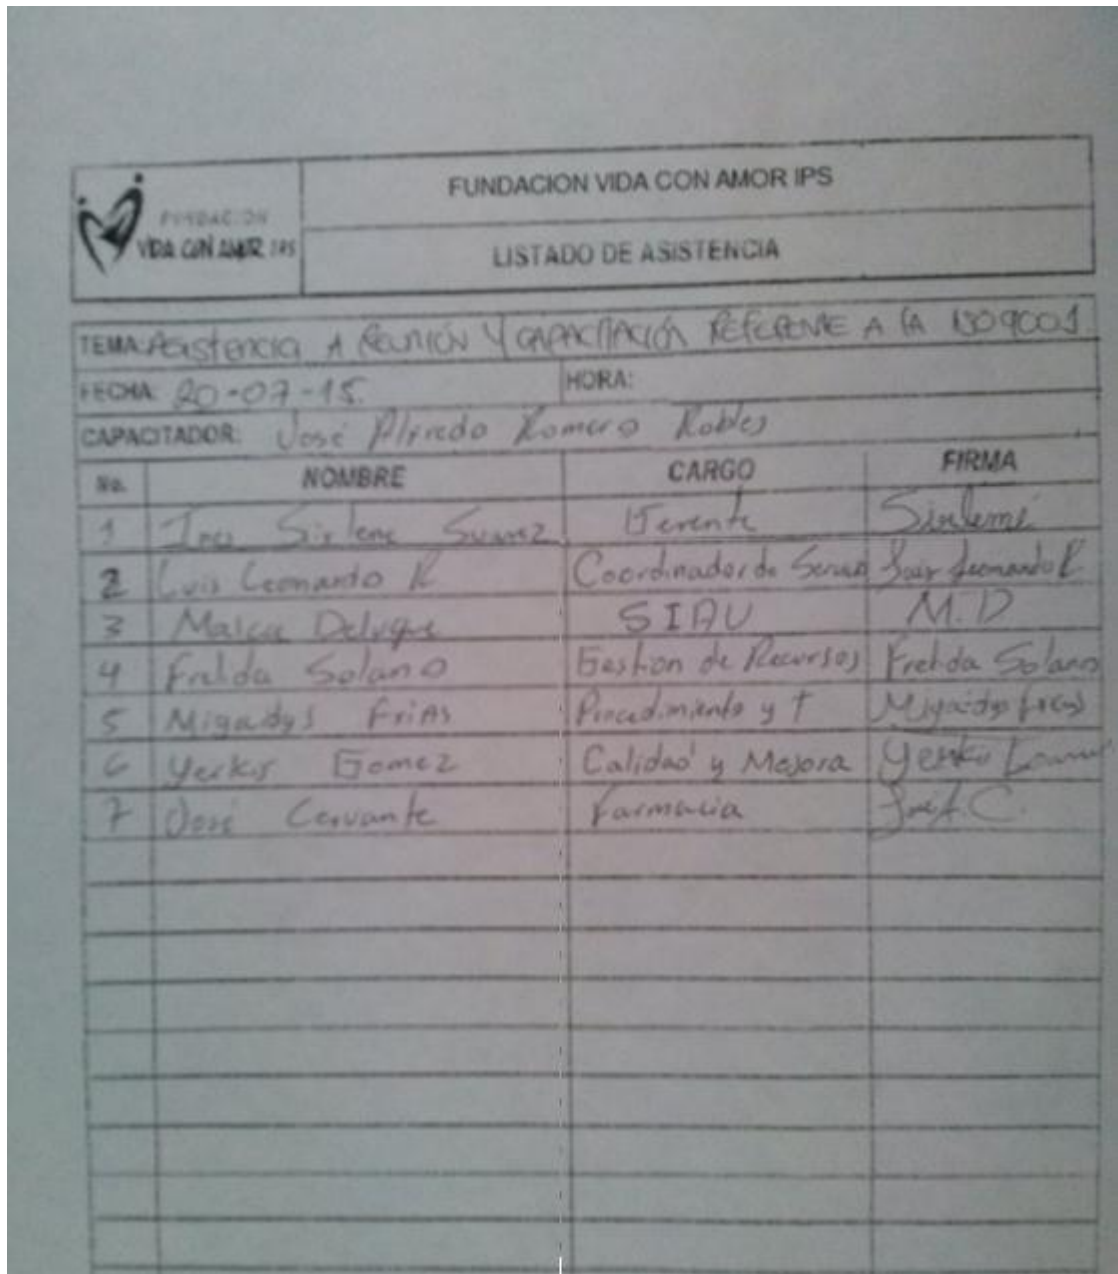 FUNDACION
VIDA CON AMOR IPS
FUNDACION VIDA CON AMOR IPS
LISTADO DE ASISTENCIA
TEMA: Asistencia A Reunión Y CAPACITACIÓN REFERENTE A LA ISO9001
FECHA: 20-07-15. HORA:
CAPACITADOR: José Alfredo Romero Robles
No. NOMBRE CARGO FIRMA
1 Sirlene Suarez Gerente
2 Luis Leonardo R Coordinador de Leonardo R.
3 Deluque SIAU M.D
4 Frelda Solano Gestion de Recursos Frelda Solano
5 Migadys FriAs Procedimiento y T Migaidys frias
6 Yerkis Gomez Calidad y Mejora Yerkis
7 José Cervante Farmacia José A.C.